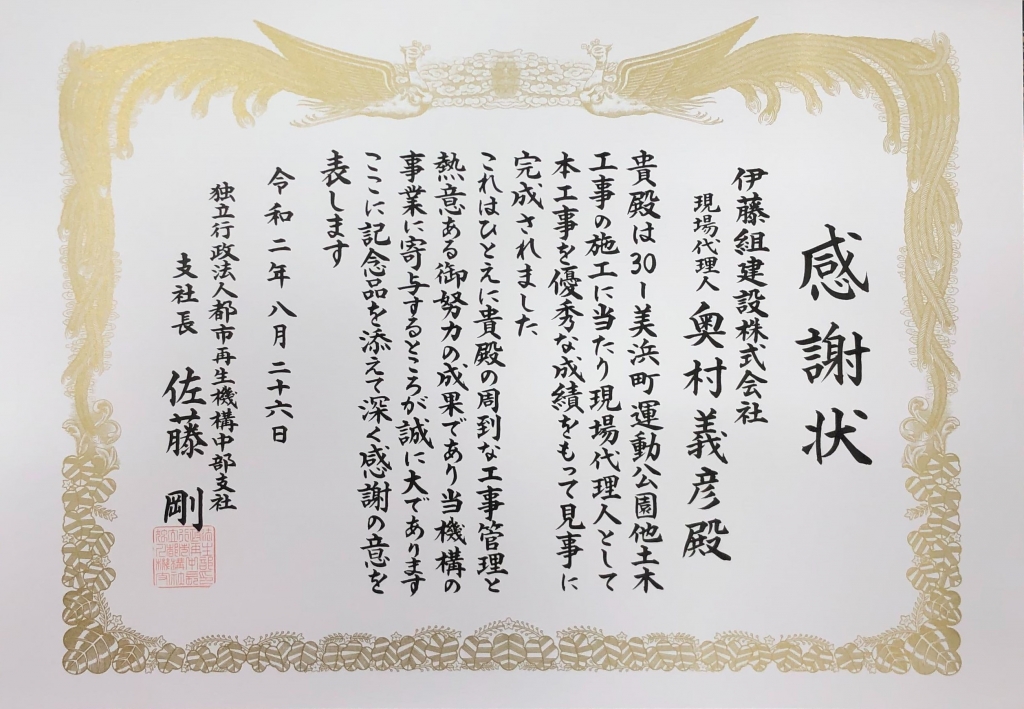 感謝状
伊藤組建設株式会社
現場代理人 奥村義彦殿
貴殿は30ー美浜町運動公園他土木
工事の施工に当たり現場代理人として
本工事を優秀な成績をもって見事に
完成されました
これはひとえに貴殿の周到な工事管理と
熱意ある御努力の成果であり当機構の
事業に寄与するところが誠に大であります
ここに記念品を添えて深く感謝の意を
表します
令和二年八月二十六日
独立行政法人都市再生機構中部支社
支社長 佐藤 剛